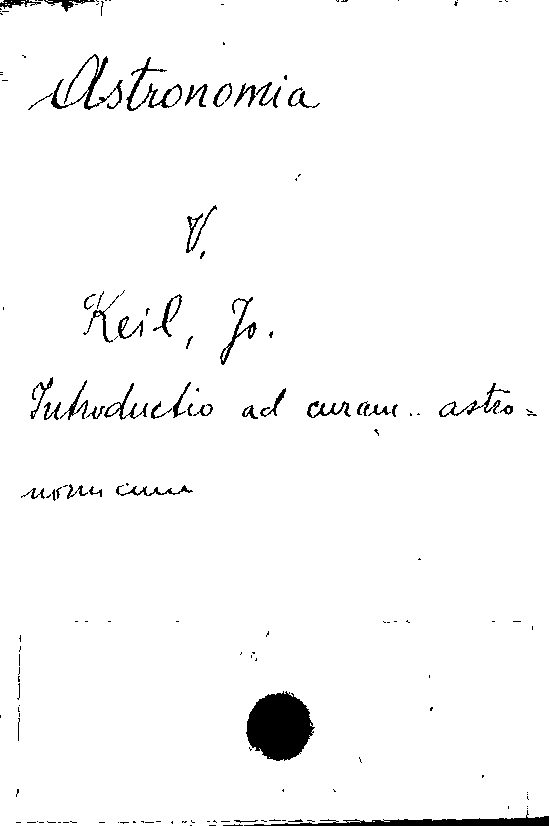 Astronomia
V.
Keil, Jo.
Introductio ad curam.. astro=
nomicam